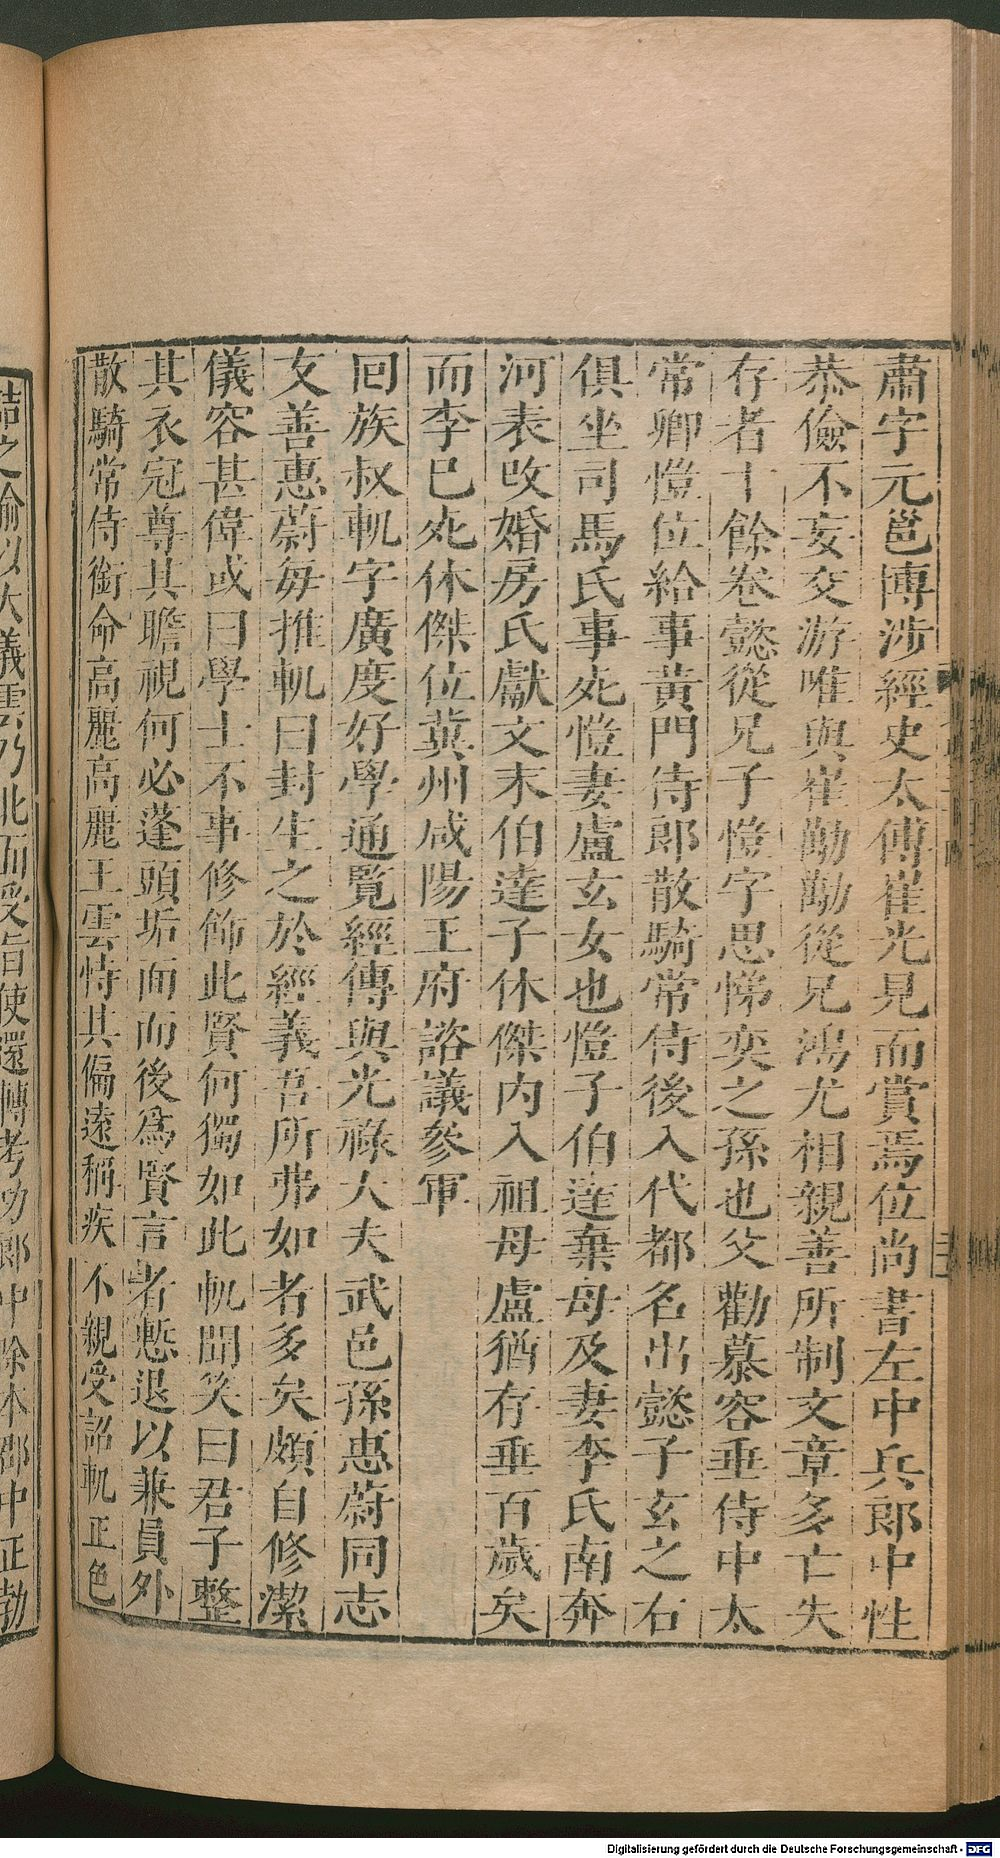 肅字元邕博涉經史太傅崔光見而賞焉位尚書左中兵郎中性
恭儉不妄交游唯與崔勵勵從兄鴻尤相親善所制文章多亡失
存者十餘卷懿從兄子愷字思悌奕之孫也父勸慕容垂侍中太
常卿愷位給事黃門侍郎散騎常侍後入代都名出懿子玄之右
俱坐司馬氏事死愷妻盧玄女也愷子伯達棄母及妻李氏南奔
河表改婚房氏獻文末伯達子休傑內入祖母盧猶存垂百歲矣
而李巳死休傑位冀州咸陽王府諮議參軍
回族叔軌字廣度好學通覽經傳與光祿大夫武邑孫惠蔚同志
友善惠蔚每推軌曰封生之於經義吾所弗如者多矣頗自修潔
儀容甚偉或曰學士不事修飾此賢何獨如此軌聞笑曰君子整
其衣冠尊其瞻視何必蓬頭垢面而後爲賢言者慙退以兼員外
散騎常侍銜命高麗高麗王雲恃其偏遠稱疾不親受詔軌正色
詰之喻以大義雲乃北面受旨使還轉考功郎中除本郡中正勃
Digitalisierung gefördert durch die Deutsche Forschungsgemeinschaft - DFG